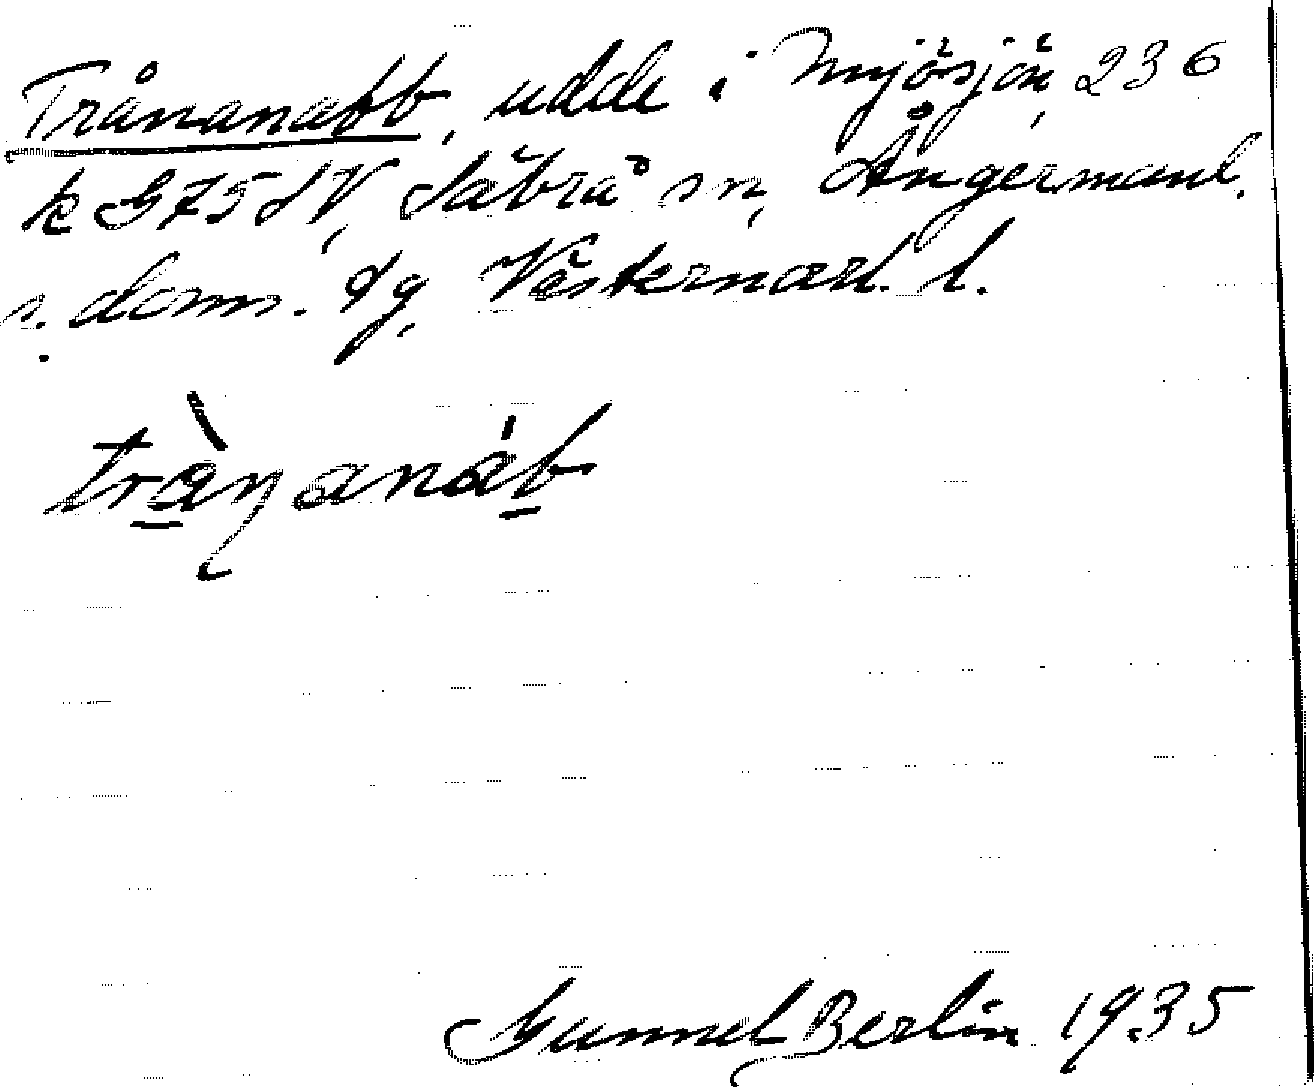 Trånanabb, udde i Mjösjön, 236
k G75SV, Säbrå sn, Ångermanl.
s. doms. dg, Västernorrl. l.
trånanáb
Gunnel Berlin 1935